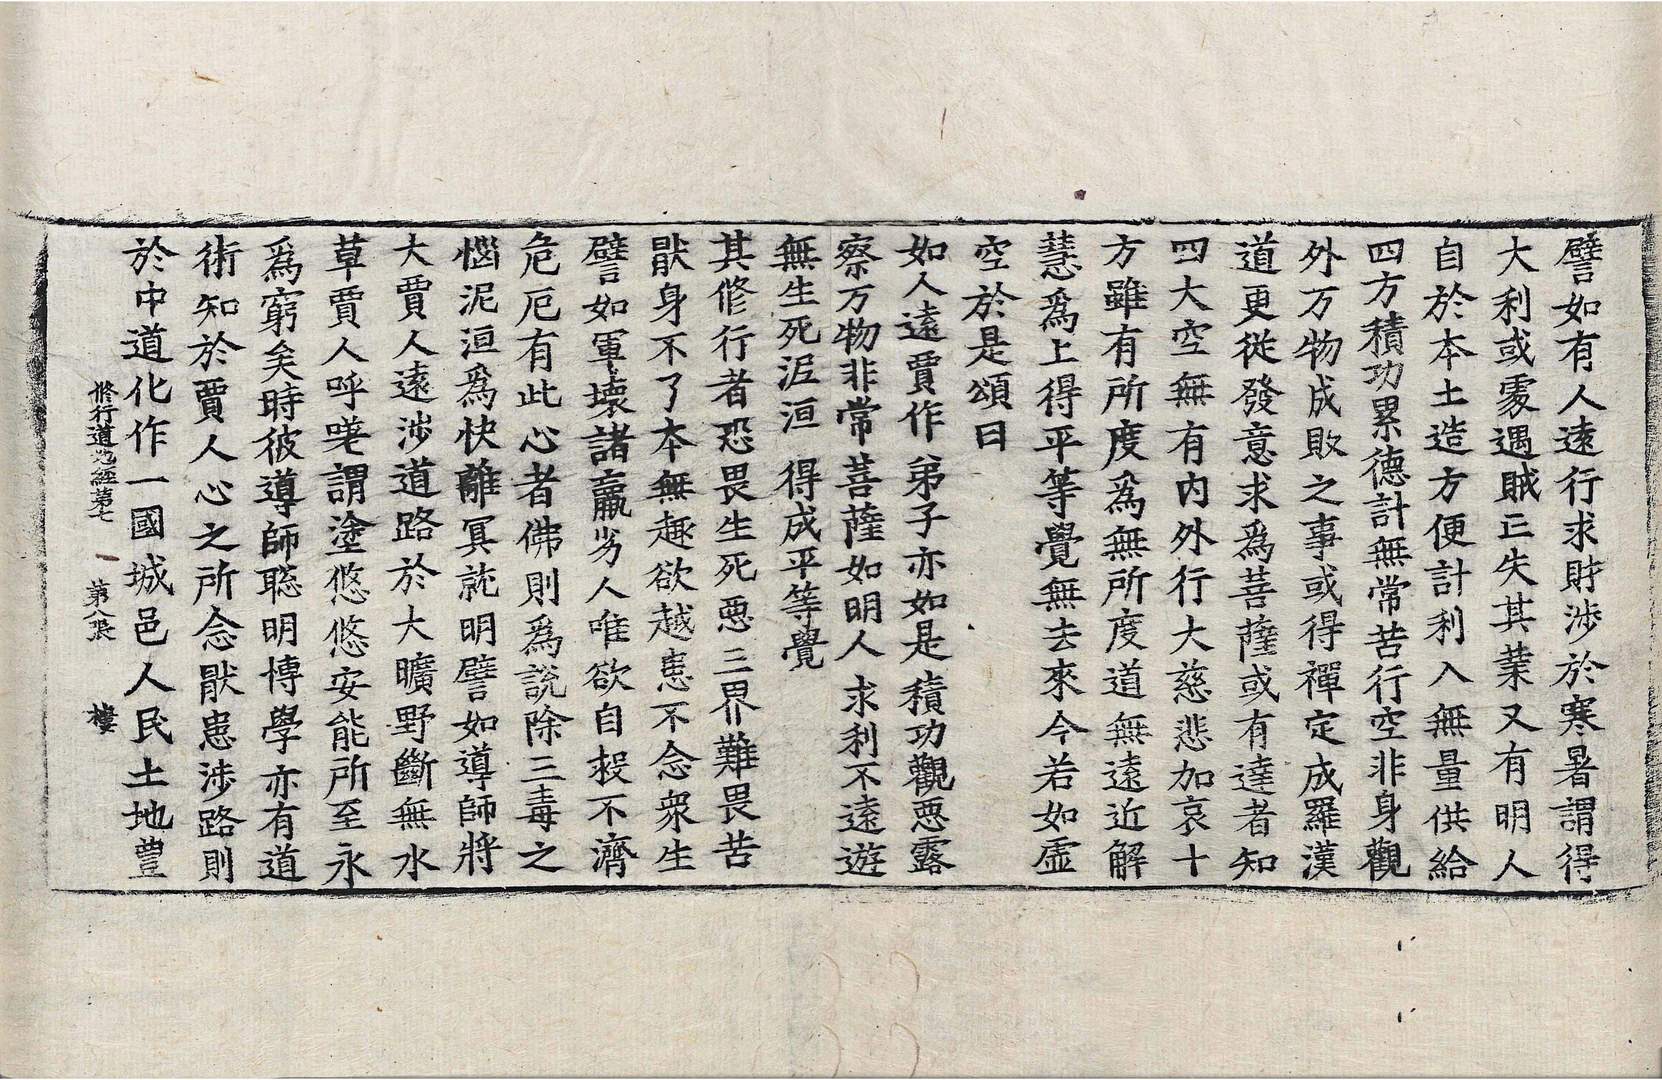 譬如有人遠行求財涉於寒暑謂得
大利或處遇賊亡失其業又有明人
自於本土造方便計利入無量供給
四方積功累德計無常苦行空非身觀
外万物成敗之事或得禪定成羅漢
道更從發意求爲菩薩或有達者知
四大空無有内外行大慈悲加哀十
方雖有所度爲無所度道無遠近解
慧爲上得平等覺無去來今若如虛
空於是頌曰
如人遠賈作 弟子亦如是 積功觀惡露
察万物非常 菩薩如明人 求利不遠遊
無生死泥洹 得成平等覺
其修行者恐畏生死惡三界難畏苦
猒身不了本無趣欲越患不念衆生
譬如軍壞諸羸劣人唯欲自投不濟
危厄有此心者佛則爲説除三毒之
惱泥洹爲快離冥就明譬如導師將
大賈人遠涉道路於大曠野斷無水
草賈人呼嗟謂塗悠悠安能所至永
爲窮矣時彼導師聡明博學亦有道
術知於賈人心之所念猒患涉路則
於中道化作一國城邑人民土地豐
修行道地經第七 第八張 樓